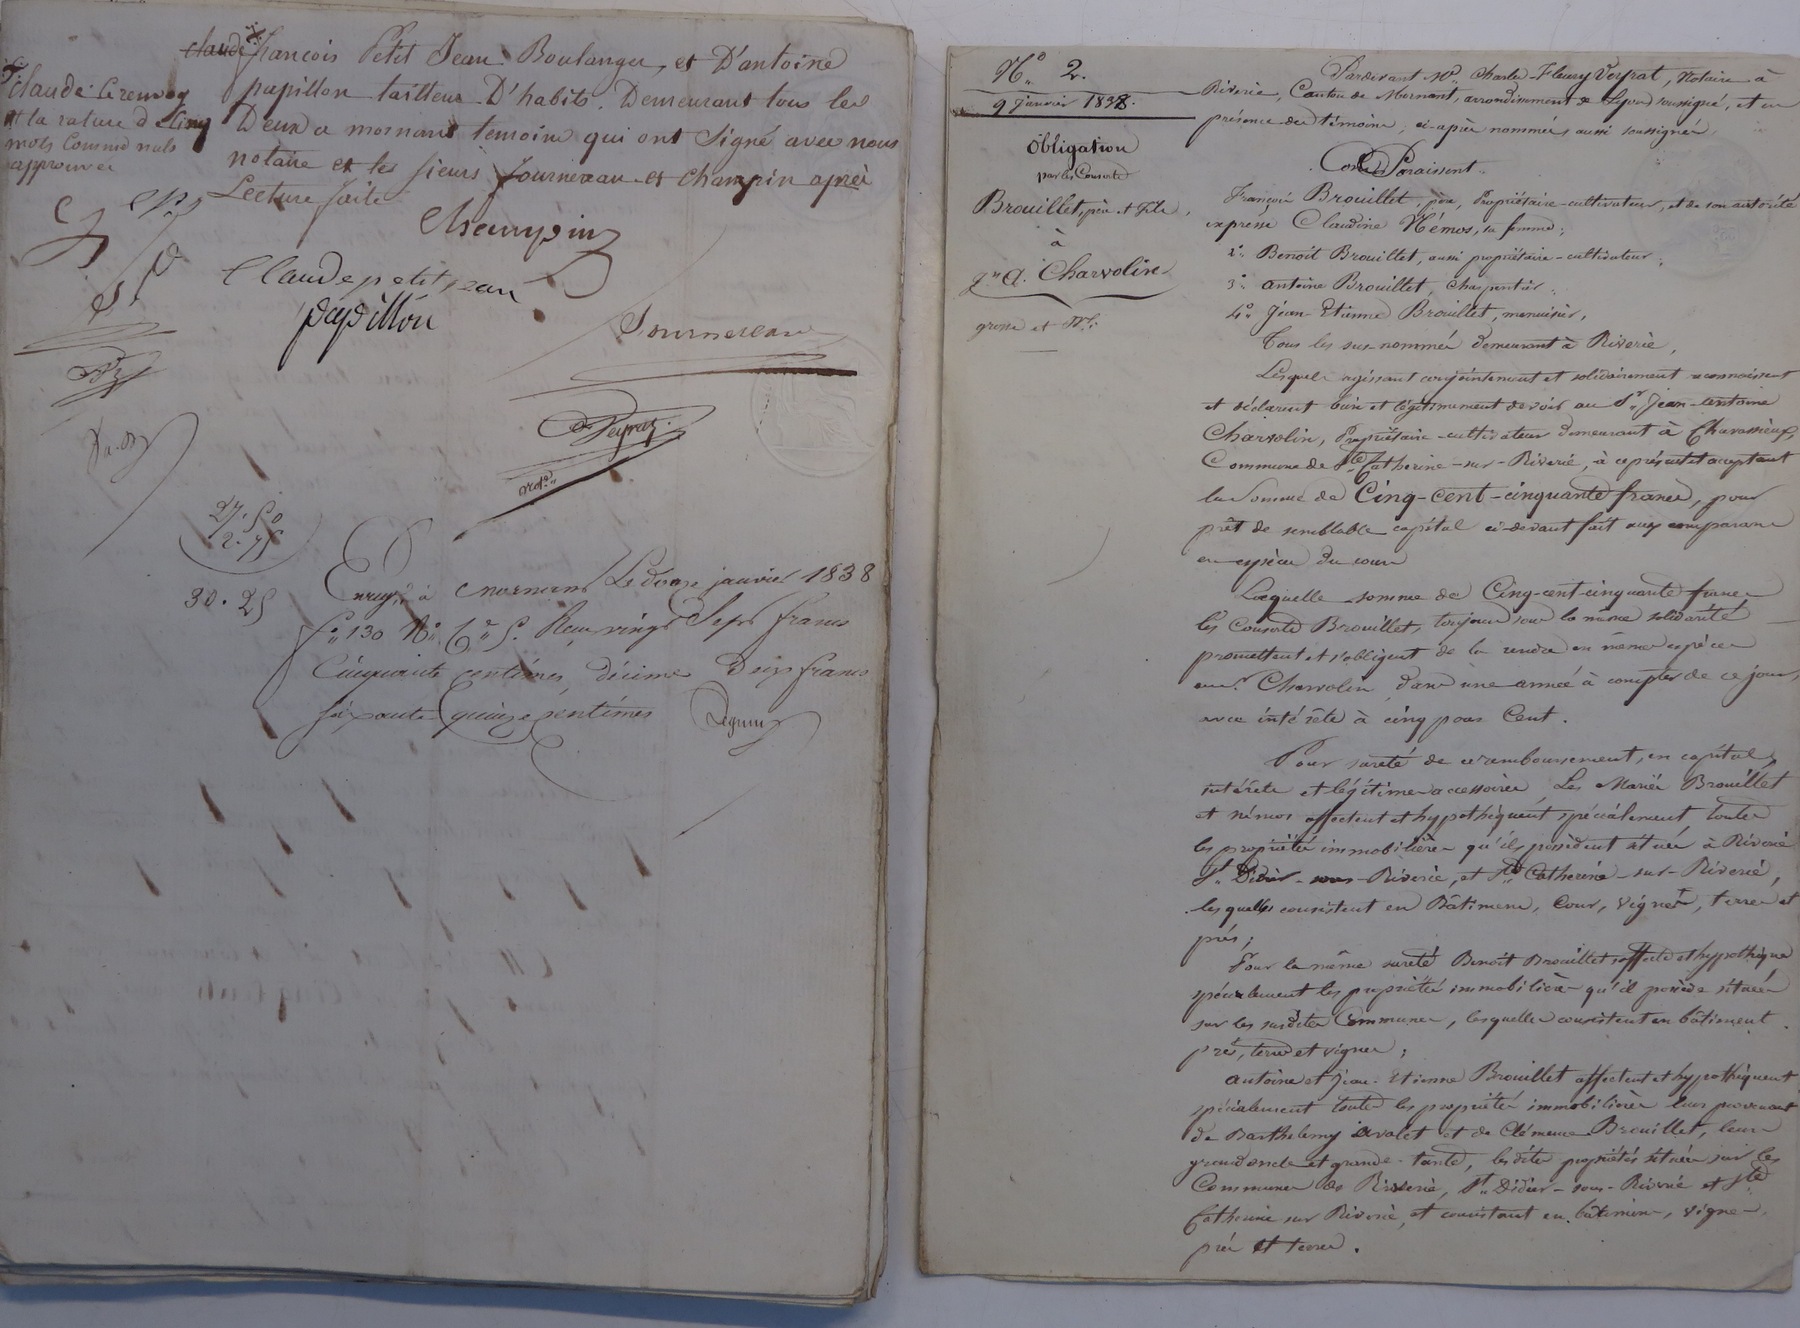 François Petit Jean Boulanger, et D'antoine
papillon tailleur D'habits. Demeurant tous les
Deux a mornant temoins qui ont Signé avec nous
notaire et les sieurs fournereau et champin après
Lecture faite
et la rature de cinq
mots comme nuls
approuvée
Champin
Claude petit jean
papillon
fournereau
Veyrat
not.re
27.50
2.75
30.25
Enreg.é à mornant Le douze janvier 1838
f.o 130 R.o C.es 5. Reçu vingt Sept francs
Cinquante centimes, décime Deux francs
soixante quinze centimes
N.o 2.
9 janvier 1838.
Obligation
par les Consorts
Brouillet, père et fils,
à
J.n A. Charvolin
grosse et
Pardevant M.e Charles-Fleury Veyrat, Notaire à
Riverie, Canton de Mornant, arrondissement de Lyon soussigné, et en
présence des témoins, ci-après nommés, aussi soussignés,
Comparaissent.
François Brouillet, père, Propriétaire-cultivateur, et de son autorité
expresse Claudine Némos, sa femme;
2.o Benoît Brouillet, aussi propriétaire-cultivateur;
3.o antoine Brouillet, Charpentier;
4.o Jean-Etienne Brouillet, menuisier,
Tous les sus-nommés demeurant à Riverie,
Lesquels agissant conjointement et solidairement reconnaissent
et déclarent bien et légitimement devoir au S.r Jean-antoine
Charvolin, Propriétaire-cultivateur demeurant à Chavassieux,
Commune de Ste Catherine-sur-Riverie, à ce présent et acceptant
la Somme de Cinq-cent-cinquante francs, pour
prêt de semblable capital ci-devant fait aux comparans
en espèces du cours
Laquelle somme de Cinq-cent-cinquante francs
les Consorts Brouillet, toujours sous la même solidarité
promettent et s'obligent de la rendre en mêmes espèces
au S.r Charvolin, dans une année à compter de ce jour,
avec intérêts à cinq pour Cent.
Pour sureté de ce remboursement, en capital,
intérêts et légitimes accessoires, Les Mariés Brouillet
et Némos affectent et hypothèquent spécialement toutes
les propriétés immobilières qu'ils possèdent situées à Riverie
St. Didier-sous-Riverie, et Ste Catherine-sur-Riverie,
lesquelles consistent en Bâtimens, Cour, Vignes, terres et
prés;
Pour la même sureté Benoît Brouillet affecte et hypothèque
spécialement les propriétés immobilières qu'il possède situées
sur les susdites Communes, lesquelles consistent en bâtiment.
prés, terres et vignes;
antoine et Jean-Etienne Brouillet affectent et hypothèquent
spécialement toutes les propriétés immobilières leur provenant
de Barthelemy Avalet et de Clémence Brouillet, leurs
grand oncle et grande-tante, lesdites propriétés situées sur les
Communes de Riverie, St. Didier-sous-Riverie et Ste
Catherine sur Riverie, et consistant en bâtimens, vignes,
prés et terres.